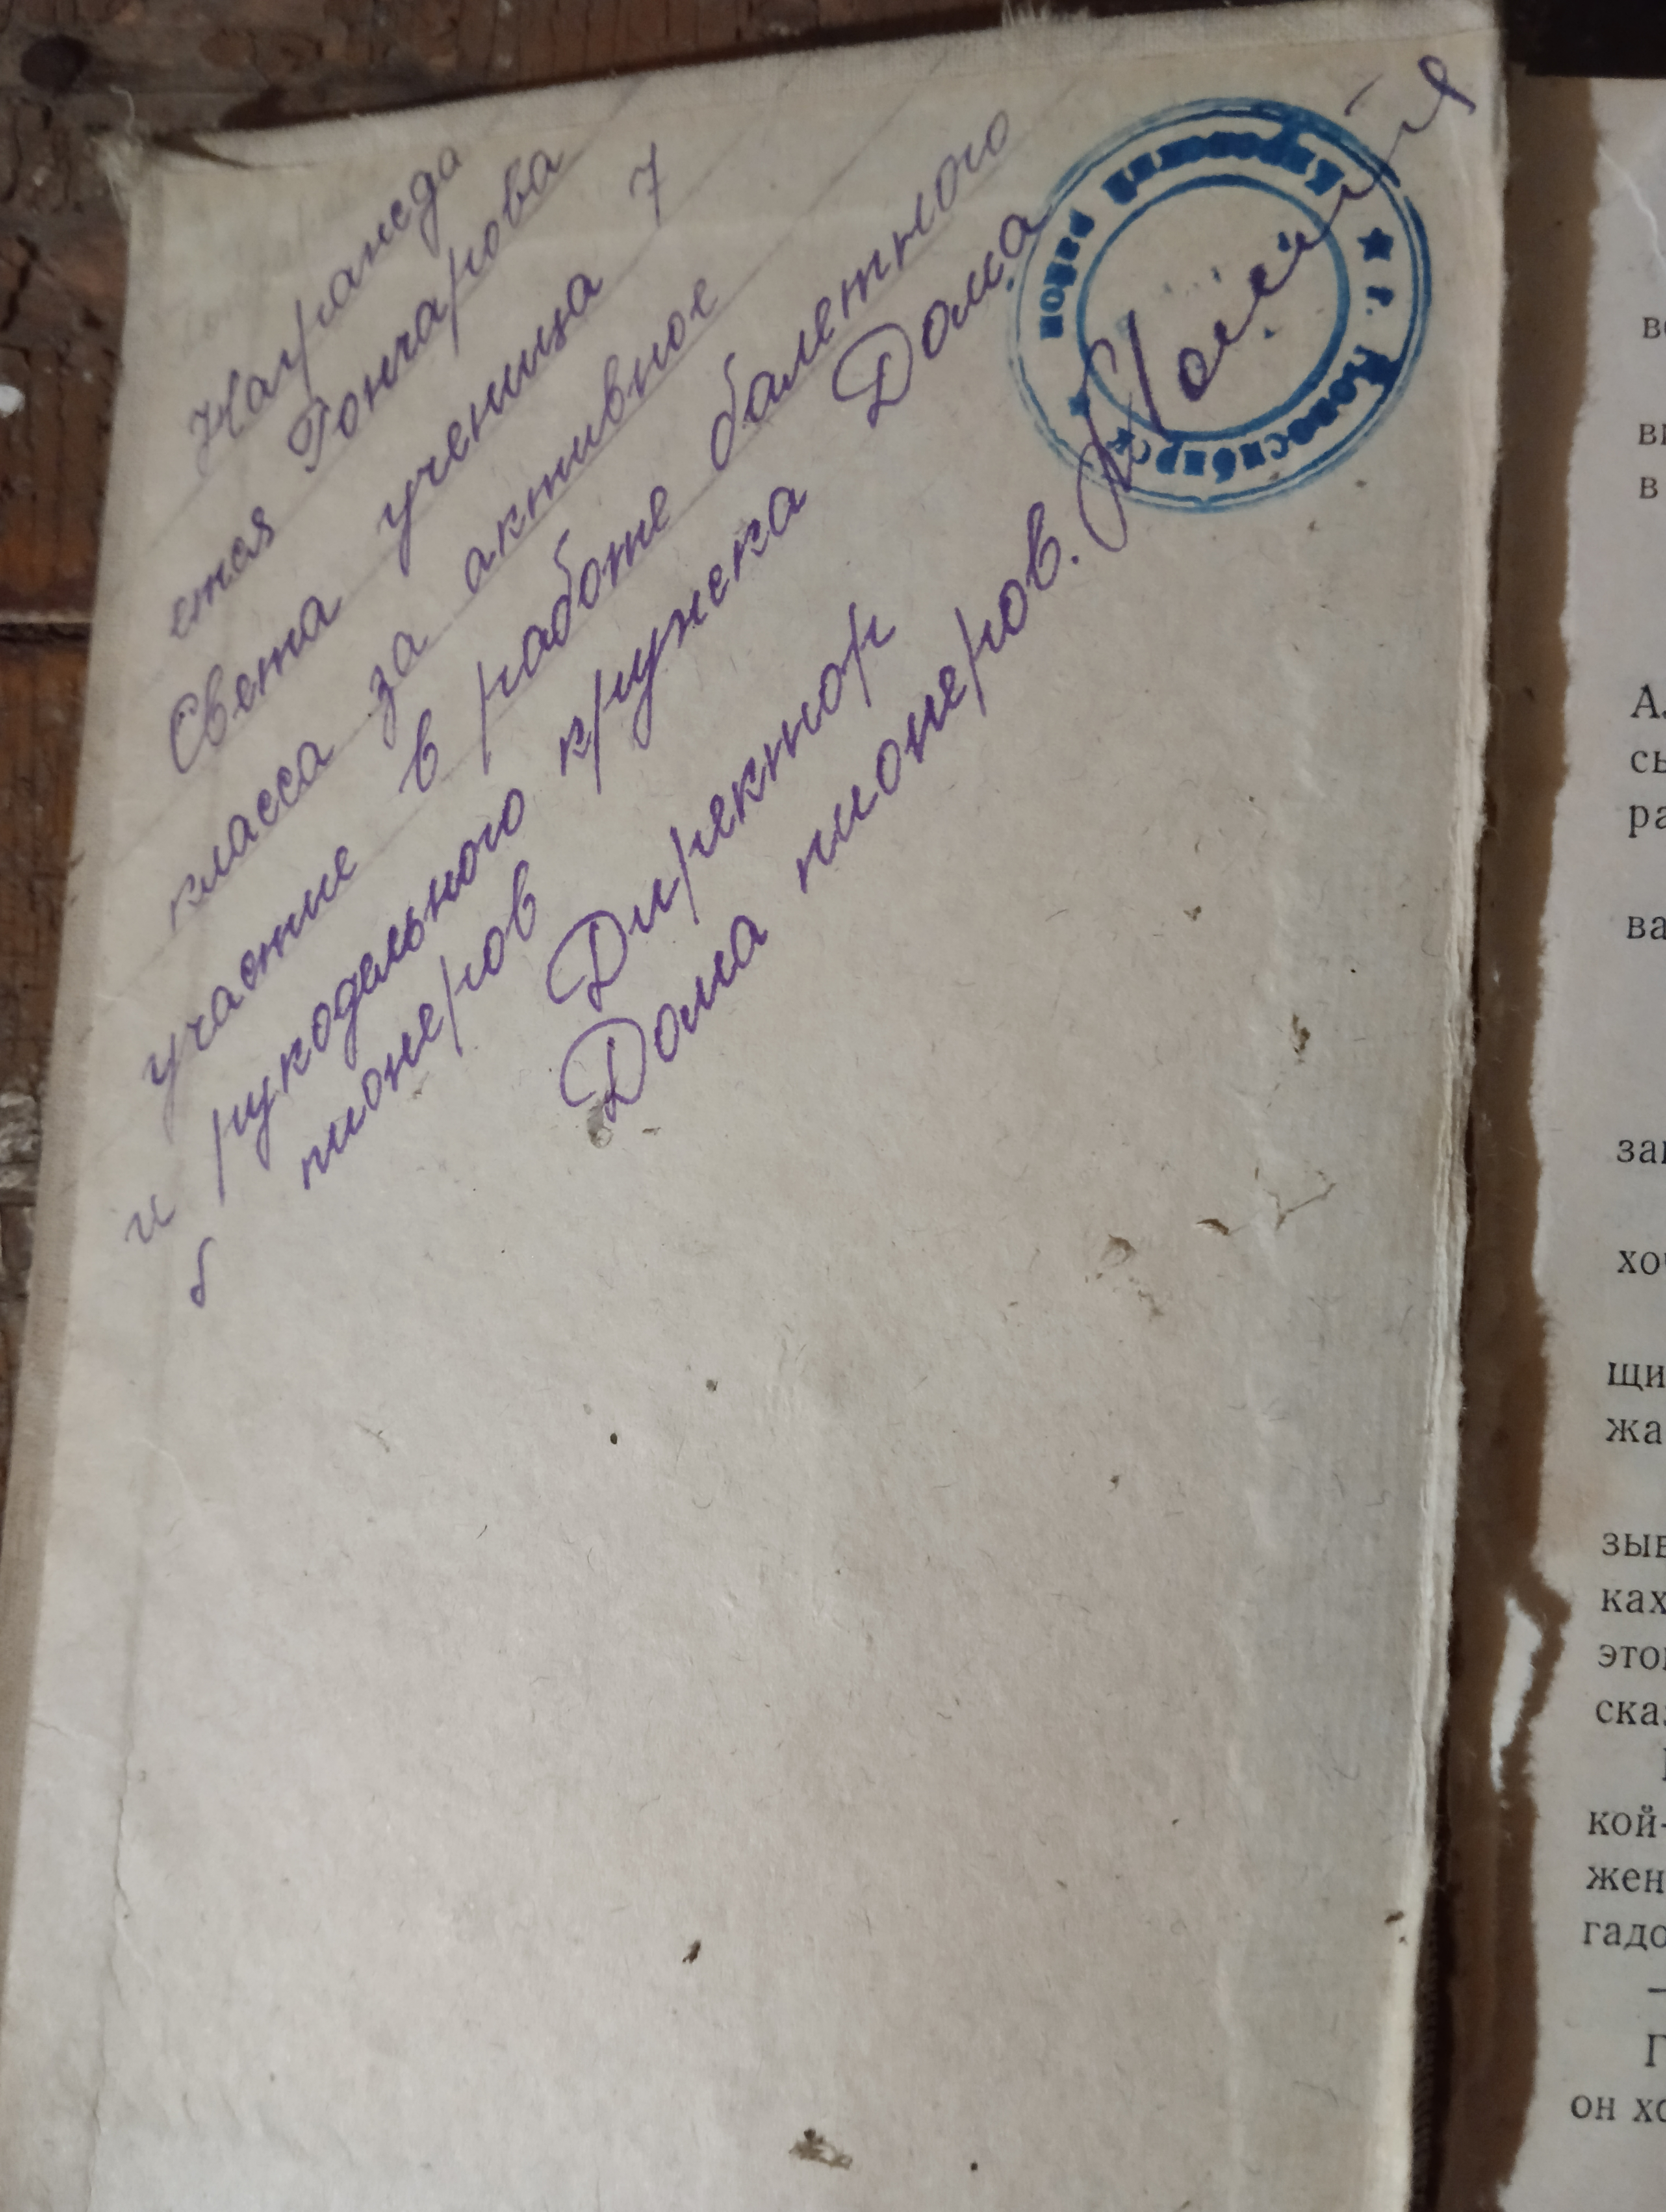 Награжда
ется Гончарова
Света ученица 7
класса за активное
участие в работе балетного
и рукодельного кружка Дома
пионеров
Директор
Дома пионеров.
Кировский район
★ г. Новосибирск ★
в
А
сь
ра
ва
хо
щи
жа
ках
кой-
жен
гадо
—
он хо